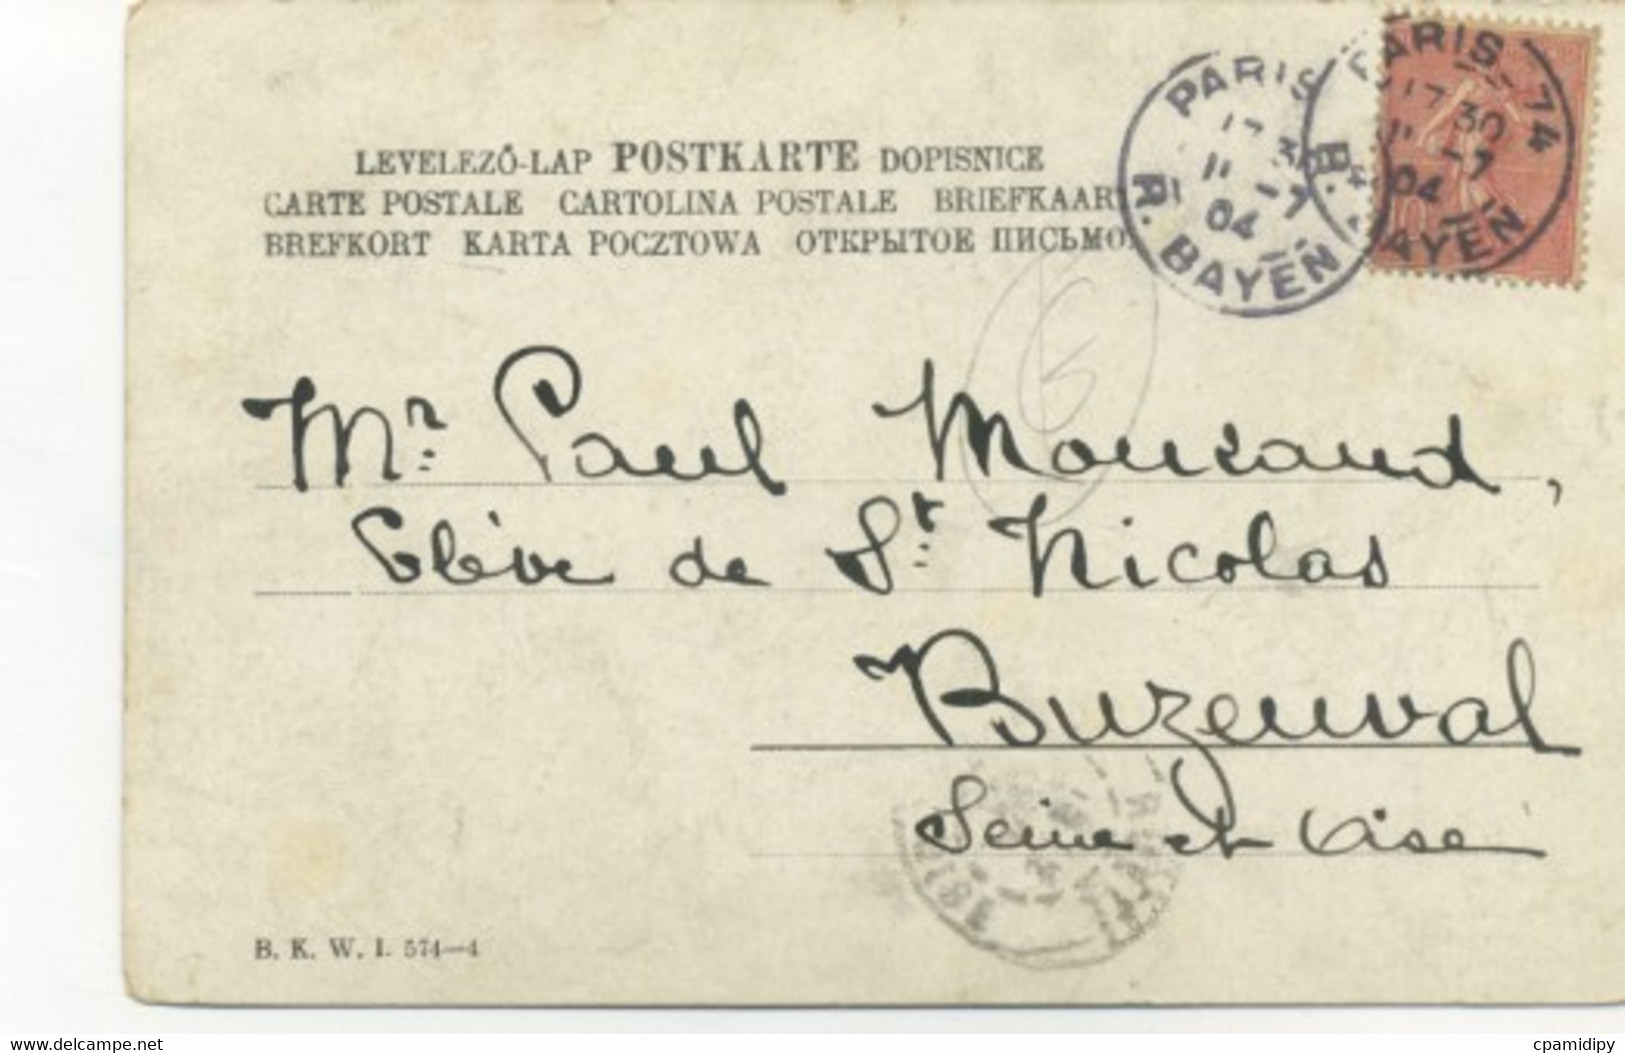 LEVELEZŐ-LAP POSTKARTE DOPISNICE
CARTE POSTALE CARTOLINA POSTALE BRIEFKAART
BREFKORT KARTA POCZTOWA ОТКРЫТОЕ ПИСЬМО
PARIS 17 30 11 -7 04 R. BAYEN
PARIS 74 17 30 11 -7 04 R. BAYEN
Mr. Paul Monsand,
Elève de St. Nicolas
Buzenval
Seine et Oise
B. K. W. I. 574—4
https://www.delcampe.net
cpamidipy